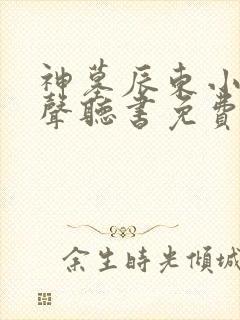 神墓辰东小
聲聽書免費
余生時光傾城